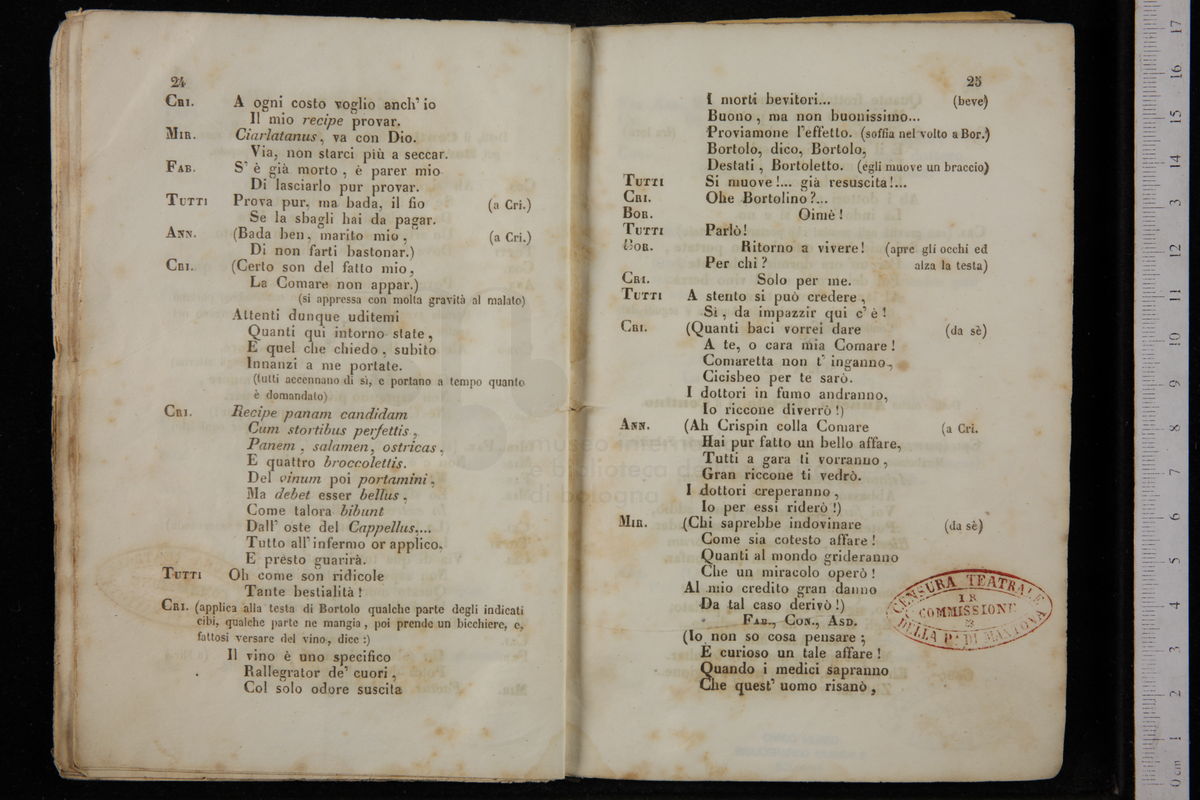 24
CRI. A ogni costo voglio anch' io
Il mio recipe provar.
MIR. Ciarlatanus, va con Dio.
Via, non starci più a seccar.
FAB. S' è già morto, è parer mio
Di lasciarlo pur provar.
TUTTI Prova pur, ma bada, il fio (a Cri.)
Se la sbagli hai da pagar.
ANN. (Bada ben, marito mio, (a Cri.)
Di non farti bastonar.)
CRI. (Certo son del fatto mio,
La Comare non appar.)
(si appressa con molta gravità al malato)
Attenti dunque uditemi
Quanti qui intorno state,
E quel che chiedo, subito
Innanzi a me portate.
(tutti accennano di sì, e portano a tempo quanto
è domandato)
CRI. Recipe panam candidam
Cum stortibus perfettis,
Panem, salamen, ostricas,
E quattro broccolettis.
Del vinum poi portamini,
Ma debet esser bellus,
Come talora bibunt
Dall' oste del Cappellus....
Tutto all' infermo or applico,
E presto guarirà.
TUTTI Oh come son ridicole
Tante bestialità!
CRI. (applica alla testa di Bortolo qualche parte degli indicati
cibi, qualche parte ne mangia, poi prende un bicchiere, e,
fattosi versare del vino, dice:)
Il vino è uno specifico
Rallegrator de' cuori,
Col solo odore suscita
25
I morti bevitori... (beve)
Buono, ma non buonissimo...
Proviamone l'effetto. (soffia nel volto a Bor.)
Bortolo, dico, Bortolo,
Destati, Bortoletto. (egli muove un braccio)
TUTTI Si muove!... già resuscita!...
CRI. Ohe Bortolino?...
BOR. Oimè!
TUTTI Parlò!
BOR. Ritorno a vivere! (apre gli occhi ed
Per chi? alza la testa)
CRI. Solo per me.
TUTTI A stento si può credere,
Sì, da impazzir qui c' è!
CRI. (Quanti baci vorrei dare (da sè)
A te, o cara mia Comare!
Comaretta non t' inganno,
Cicisbeo per te sarò.
I dottori in fumo andranno,
Io riccone diverrò!)
ANN. (Ah Crispin colla Comare (a Cri.
Hai pur fatto un bello affare,
Tutti a gara ti vorranno,
Gran riccone ti vedrò.
I dottori creperanno,
Io per essi riderò!)
MIR. (Chi saprebbe indovinare (da sè)
Come sia cotesto affare!
Quanti al mondo grideranno
Che un miracolo operò!
Al mio credito gran danno
Da tal caso derivò!)
FAB., CON., ASD.
(Io non so cosa pensare;
È curioso un tale affare!
Quando i medici sapranno
Che quest' uomo risanò,
CENSURA TEATRALE
I R
COMMISSIONE
DELLA P.a DI MANTOVA
museo inter
e biblioteca de
di bologna